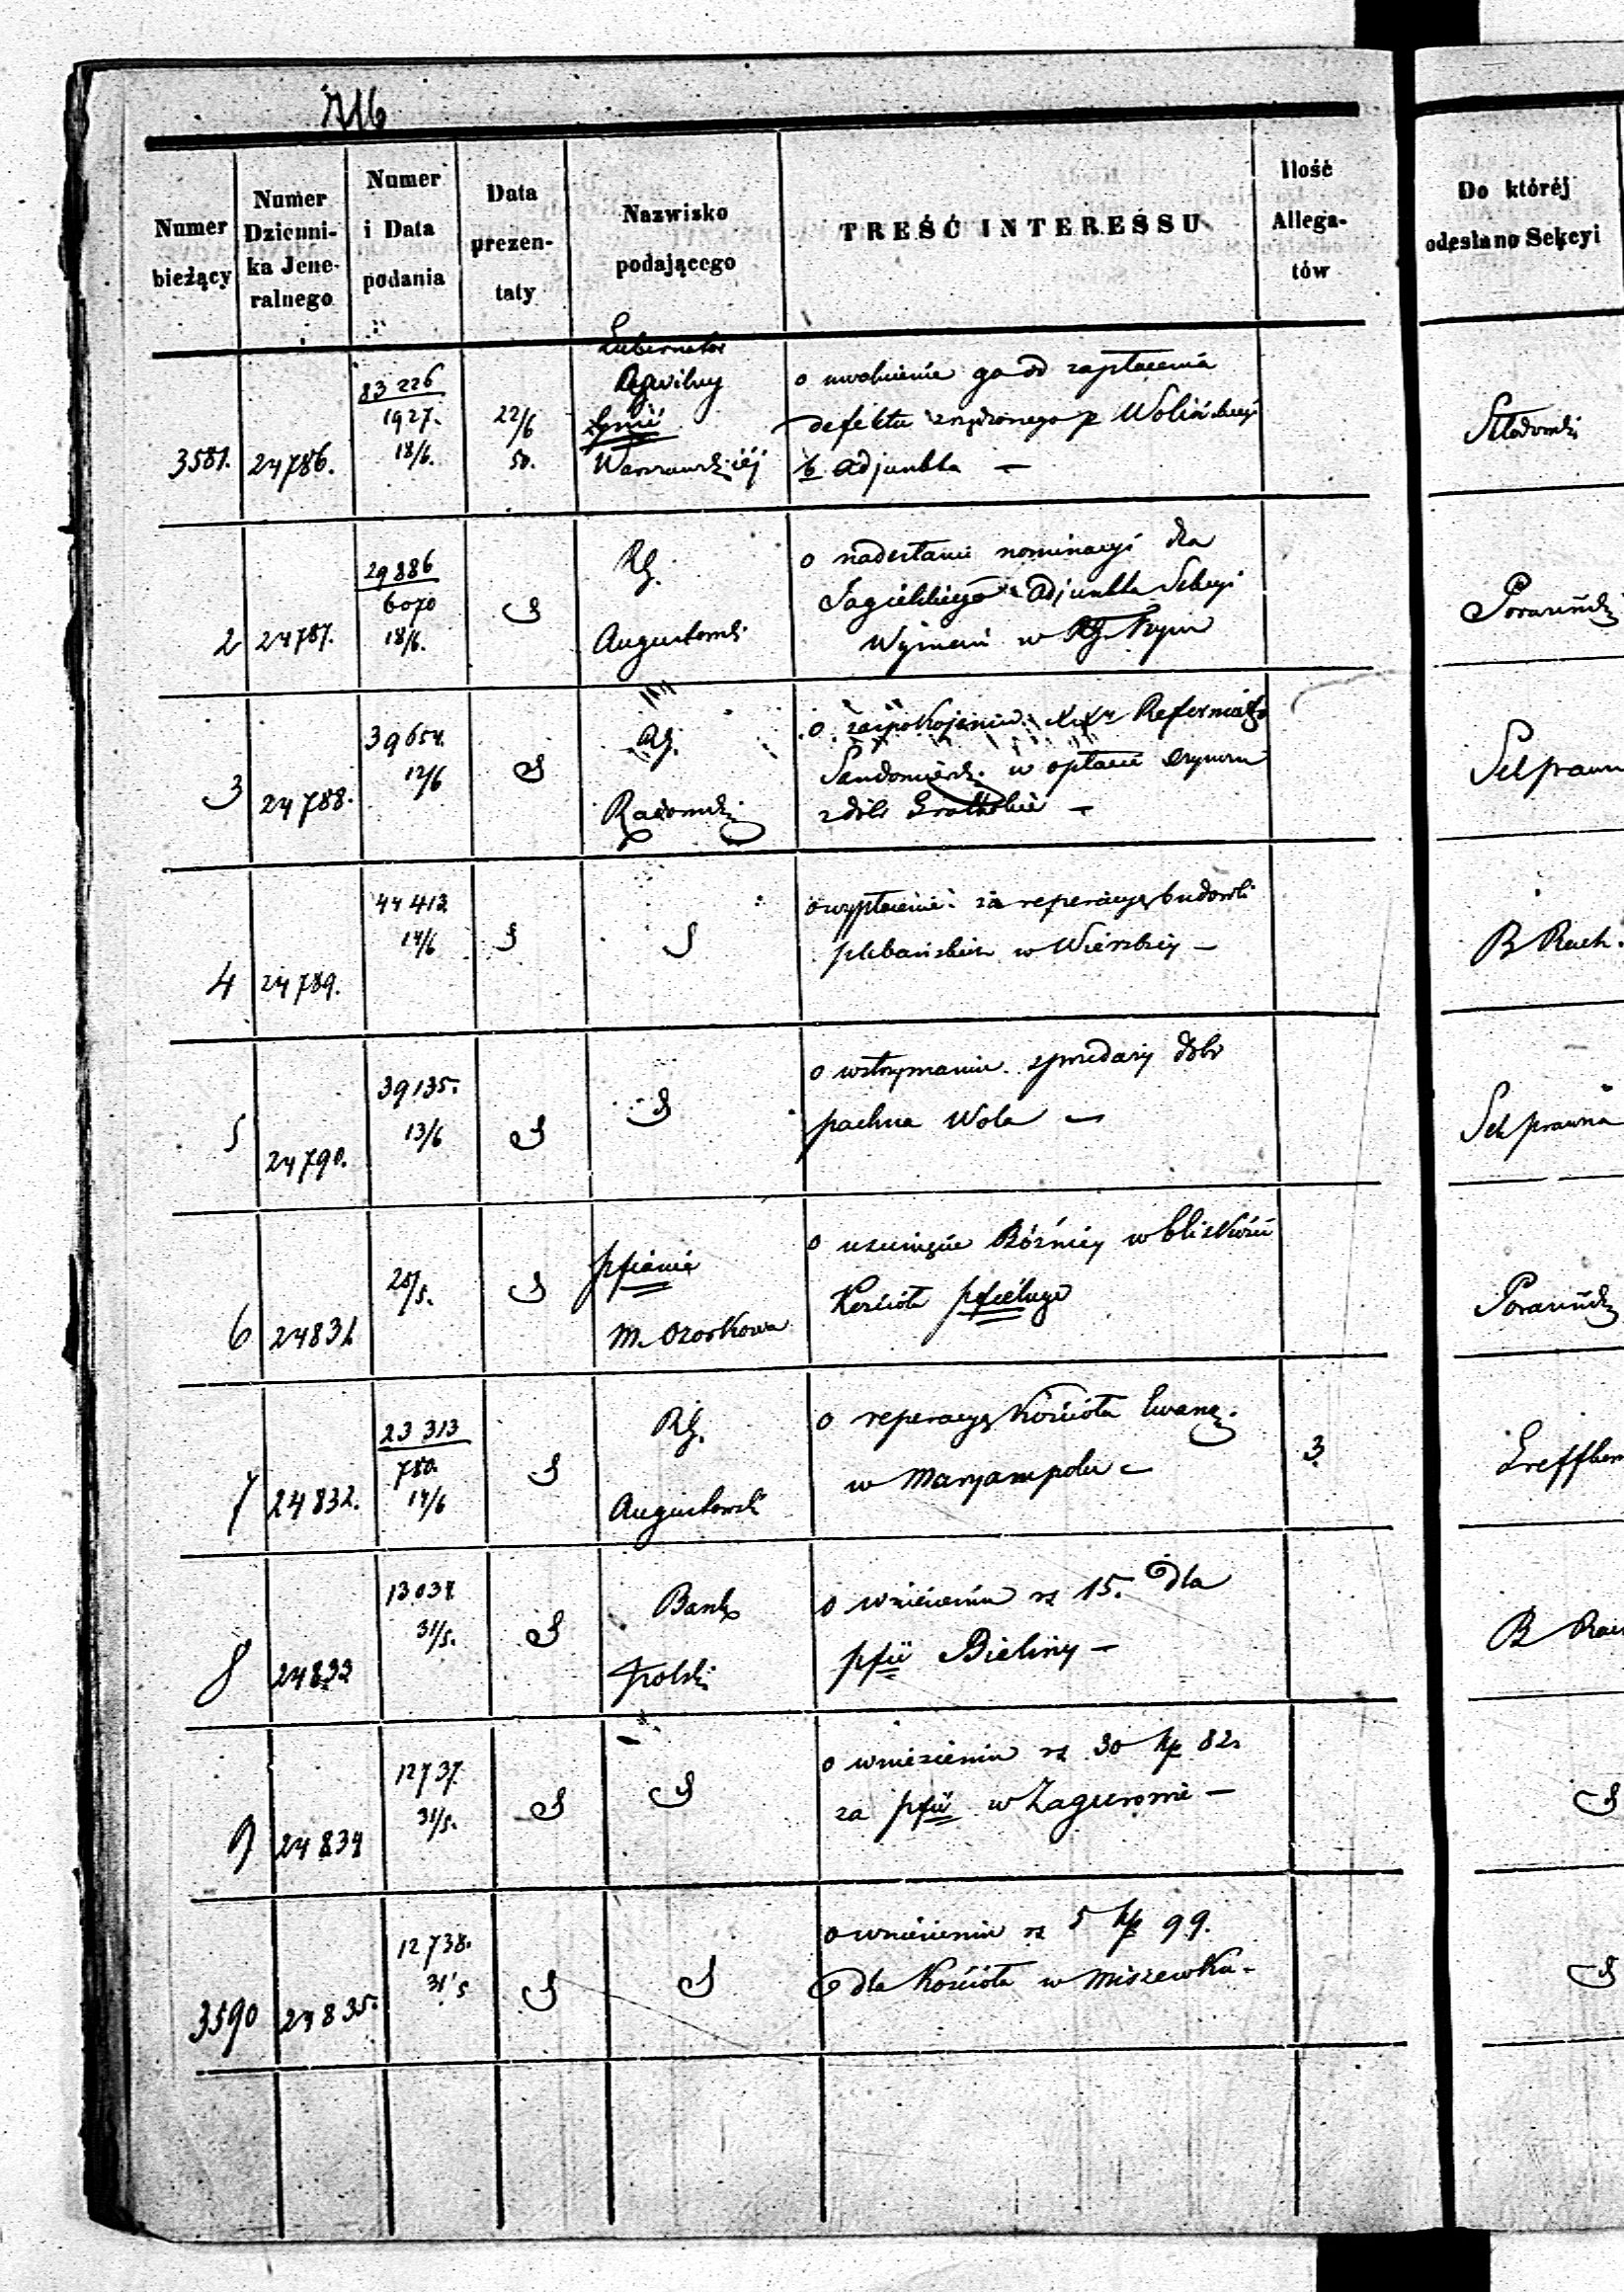 716
Numer bieżący
Numer Dzienni-ka Jene-ralnego
Numer i Data podania
Data prezen-taty
Nazwisko podającego
TREŚĆ INTERESSU
Ilość Allega-tów
Do któréj odesłano Sekcyi
3581. 24786. 83226 1927. 18/6. 22/6 50.
Gubernator
Cywilny
Warszawskiéj
o uwolnienie go od zapłacenia
defektu zrządzonego p Wolińskiego
b adjunkta —
2 24787. 29886 6070 18/6.
RG.
Augustowski
o nadesłanie nominacyi dla
Jagielskiego Adjunkta Sekcyi
w RG.
3 24788. 39654. 12/6
RG.
Radomski
o zaspokojenie XX Reformatów
Sandomiersk. w opłacie czynszu
z dóbr
Sek prawn
4 24789. 44412 14/6
o wypłacenie za reperacyę budowli
plebańskich w Wierzbicy —
B Rach.
5 24790. 39135. 13/6
o wstrzymanie sprzedaży dóbr
pachna Wola —
Sek prawna
6 24831 28/5.
pfianie
M. Ozorkowa
o usunięcie Bóżnicy w bliskości
Kościoła pfielnego
7 24832. 23313 780. 14/6
RG.
Augustowski
o reperacyę Kościoła Ewang.
w Maryampolu —
3
8 24833 13037. 31/5.
Bank
Polski
o wniesieniu rs 15. dla
pfii Bieliny —
B Rach
9 24834 12737. 31/5.
o wniesieniu rs 30 kp 82
za pfii w Zagurowie —
3590 24835. 12738. 31/5
o wniesieniu rs 5 kp 99.
dla Kościoła w Miszewku —